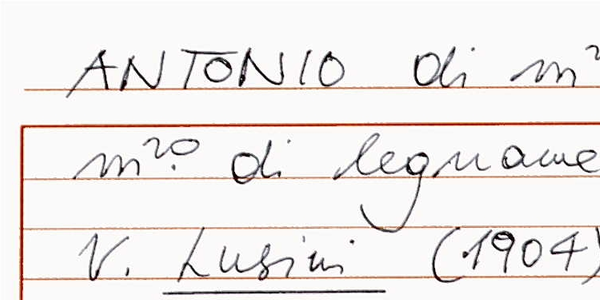 ANTONIO di m
m.ro di legname
V. Lusini (1904)